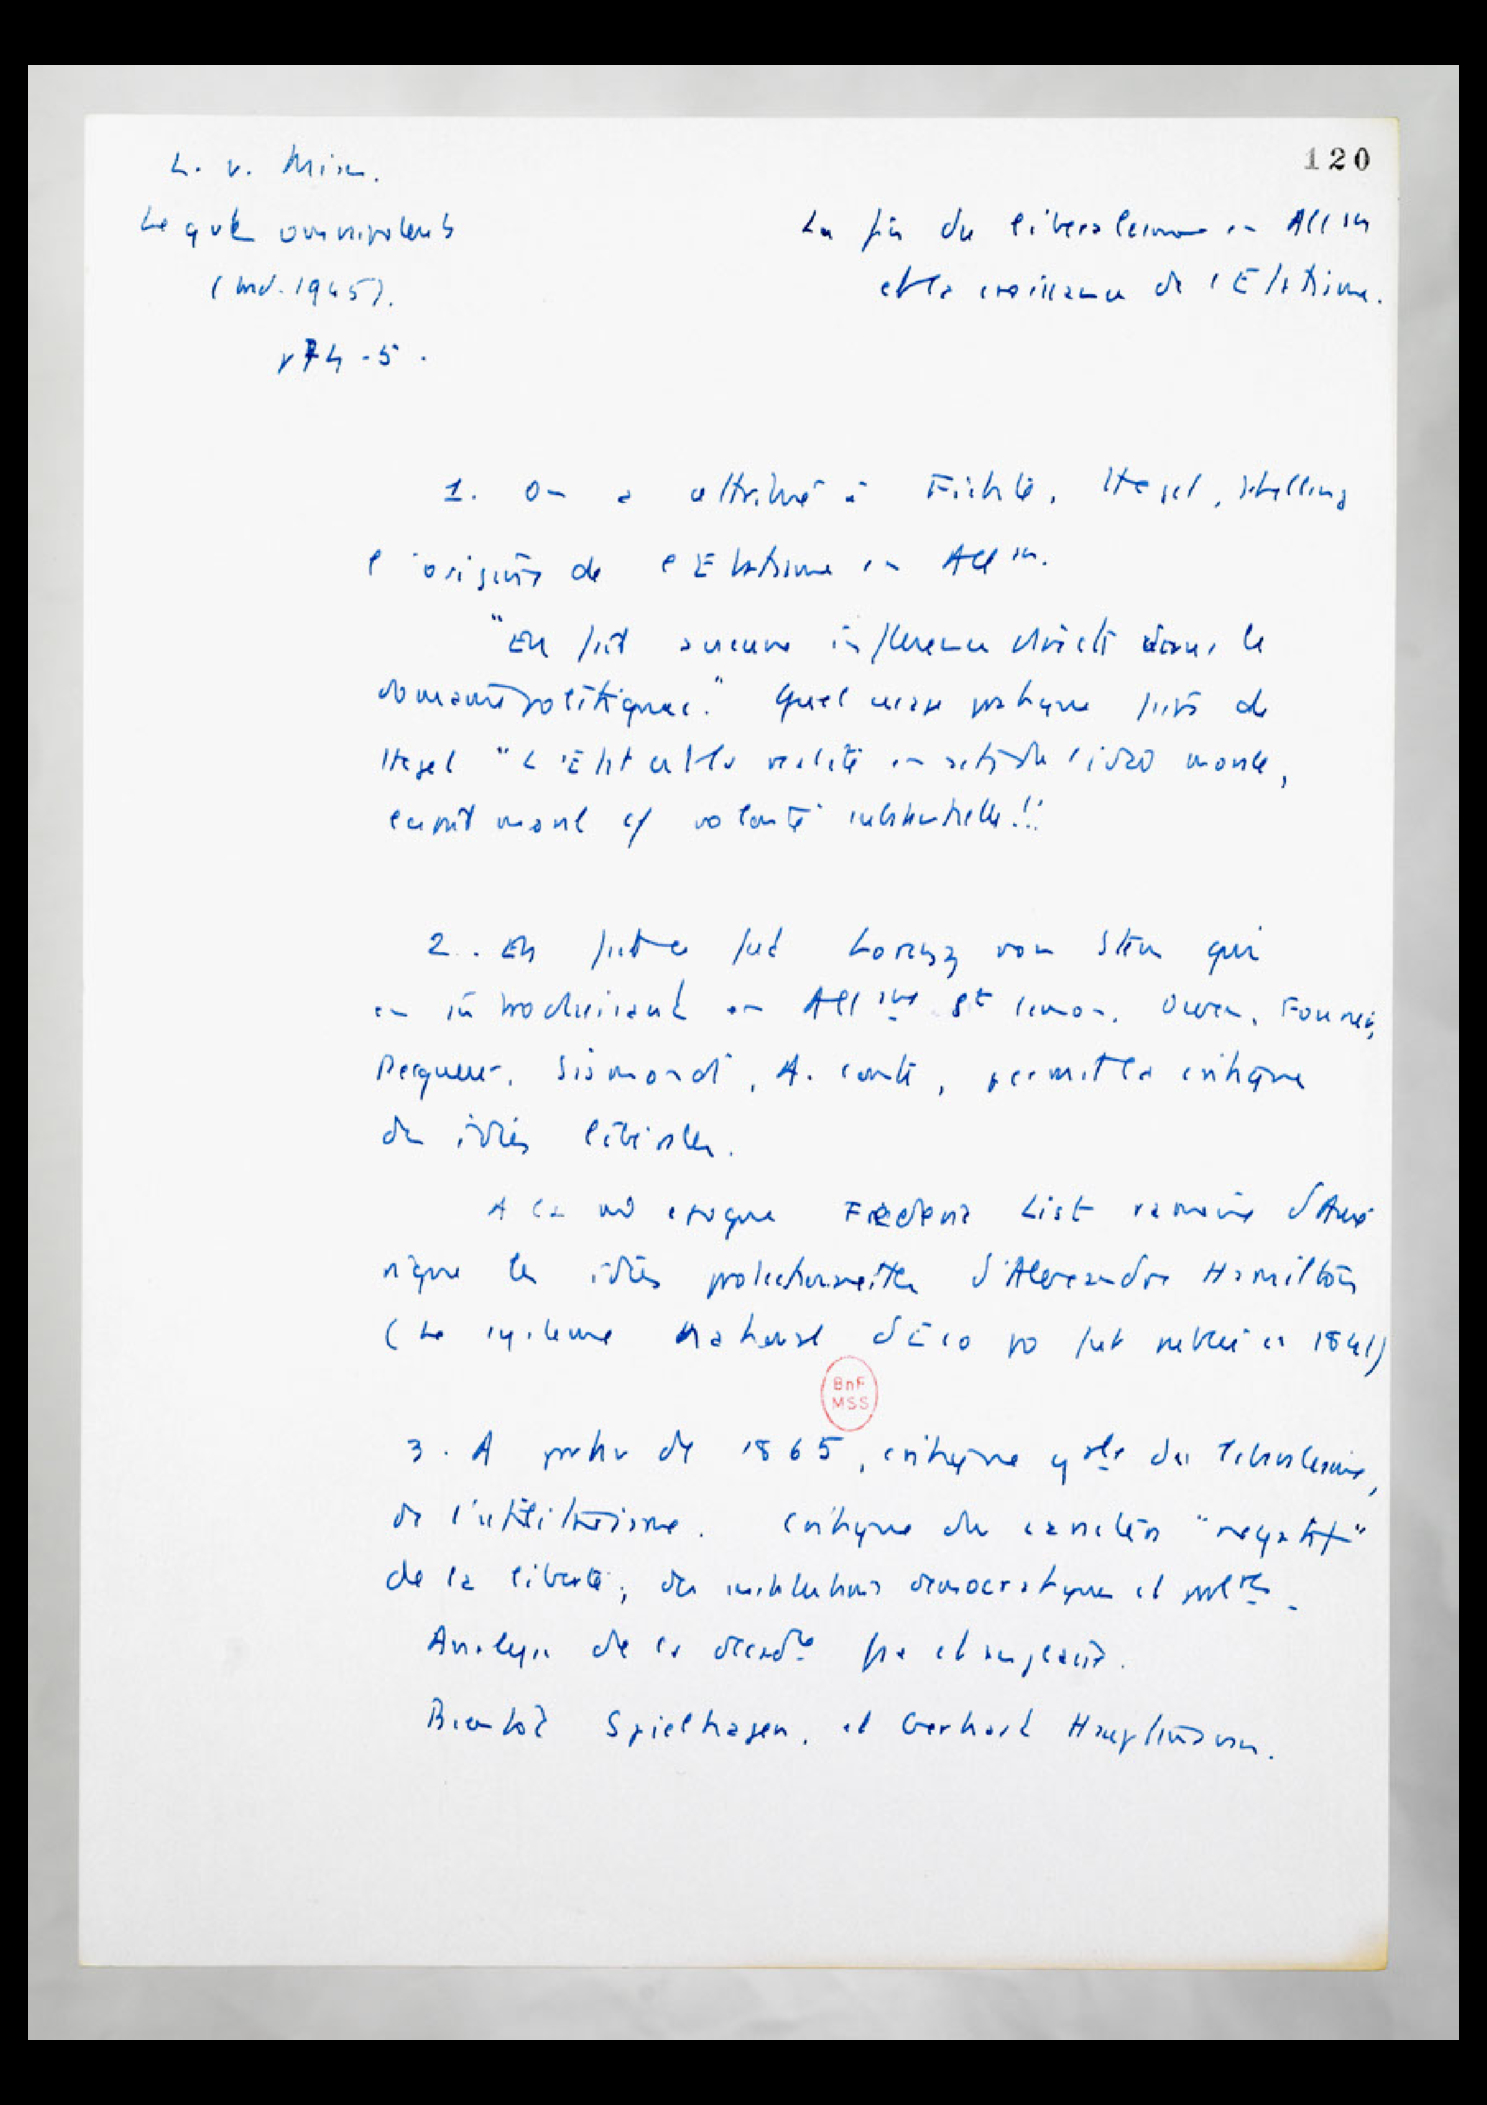 120
L. v. Mises.
Le gvt omnipotent
(trad. 1945).
p 74-5.
La fin du liberalisme en All gne
et la croissance de l'Etatisme.
1. On a attribué à Fichte, Hegel, Schelling
l'origine de l'Etatisme en All gne.
"En fait aucune influence directe dans le
domaine politique." Quel usage pratique faire de
Hegel "L'Etat est la réalité en acte de l'idée morale,
esprit moral cf volonté substantielle!!"
2. En fait ce fut Lorenz von Stein qui
en introduisant en All gne St Simon, Owen, Fourier,
Pecqueur, Sismondi, A. Comte, permit la critique
des idées libérales.
A la mê epoque Frédéric List ramène d'Amé
rique les idées protectionnistes d'Alexandre Hamilton
(Le systeme national d'Eco po fut publié en 1841)
BnF
MSS
3. A partir de 1865, critique gale du liberalisme,
de l'utilitarisme. Critique du caractère "negatif"
de la liberté, des institutions democratiques et parl res.
Analyse de la decadce fse et anglaise.
Bientôt Spielhagen, et Gerhart Hauptmann.